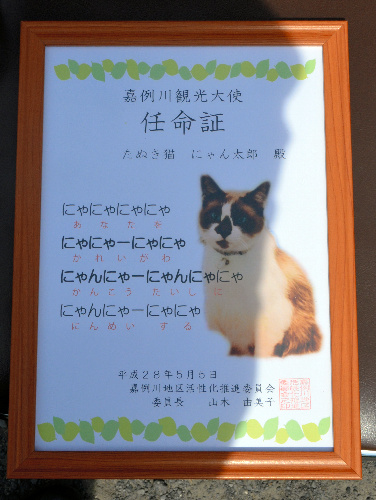 嘉例川観光大使
任命証
たぬき猫 にゃん太郎 殿
にゃにゃにゃにゃ
あなたを
にゃにゃーにゃにゃ
かれいがわ
にゃんにゃーにゃんにゃにゃ
かんこう たいし に
にゃんにゃーにゃにゃ
にんめい する
平成28年5月5日
嘉例川地区活性化推進委員会
委員長 山木 由美子